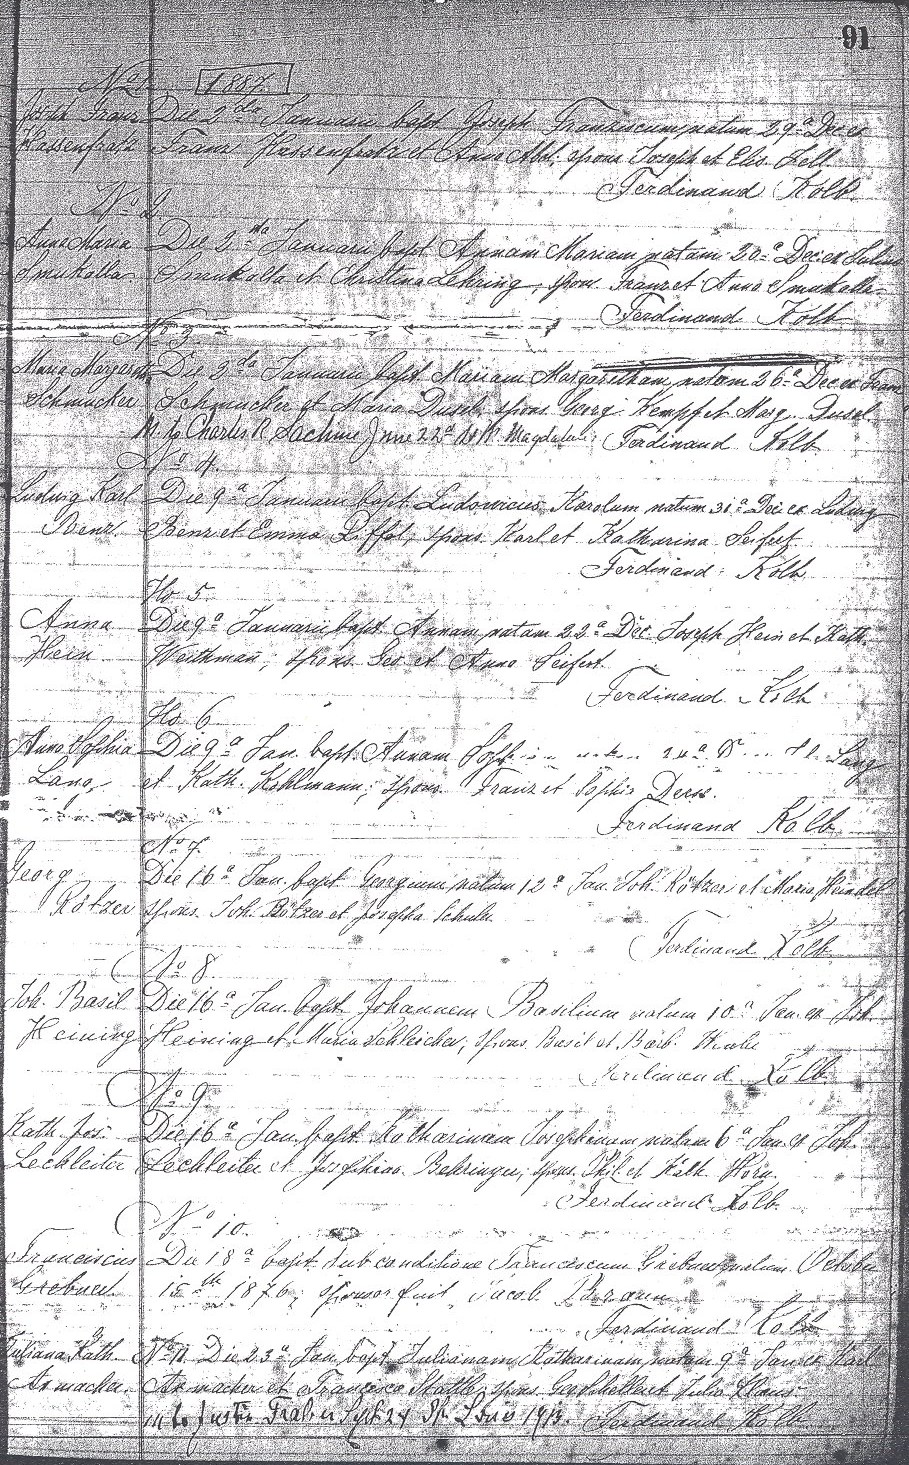 91
No 1. 1887.
Joseph Franz Die 2do Januarii bapt Joseph Franziscum natum 29a Dec ex
Hassenfratz Franz Hassenfratz et Anna Abt; spons Joseph et Elis. Zell.
Ferdinand Kolb
No 2
Anna Maria Die 2do Januarii bapt Annam Mariam natam 20a Dec ex Julius
Smukalla Smukalla et Christina Lehring, spon. Franz et Anna Smukalla
Ferdinand Kolb
No 3.
Maria Margareth Die 2do Januarii bapt Mariam Margaretham natam 26a Dec ex Franz
Schmucker Schmucker et Maria Dusel, spons Georg Kempf et Marg. Dusel.
M. to Charles R. June 22d Magdalen Ferdinand Kolb
No 4.
Ludwig Karl Die 9a Januarii bapt Ludovicus Karolum natum 31a Dec ex Ludwig
Benz. Benz et Emma Riffel, spons Karl et Katharina Seifert
Ferdinand Kolb
No 5
Anna Die 9a Januarii bapt Annam natam 22a Dec Joseph Hein et Kath.
Hein Weithman, spons Geo et Anna Seifert.
Ferdinand Kolb
No 6
Anna Sophia Die 9a Jan. bapt Annam Lang
Lang et Kath. Kohlmann; spons Franz et Sophia
Ferdinand Kolb
No 7.
Georg Die 16a Jan. bapt Georgium natum 12a Jan. Joh. Rötzer et Maria Heindel
Rötzer spons. Joh. Rötzer et Josepha Schule
Ferdinand Kolb
No 8.
Joh. Basil Die 16a Jan. bapt Johannem Basilium natum 10a Jan. ex Joh.
Heining Heining et Maria Schleicher; spons. Basil et Barb.
Ferdinand Kolb
No 9.
Kath. Jos. Die 16a Jan. bapt Katharinam Josephinam natam 6a Jan ex Joh.
Lechleiter Lechleiter et Josephina Behringer, spons. Phil et Kath. Horn.
Ferdinand Kolb.
No 10.
Franciscus Die 18a bapt sub conditione Franciscum natum October
15th 1876, sponsor fuit Jacob
Ferdinand Kolb
Juliana Kath. No 11. Die 23a Jan bapt Julianam Katharinam natam 9a Jan ex Karl
Armacher. Armacher et Francisca spons et Julia Klaus
m to Sept 24 St. Louis 1913. Ferdinand Kolb